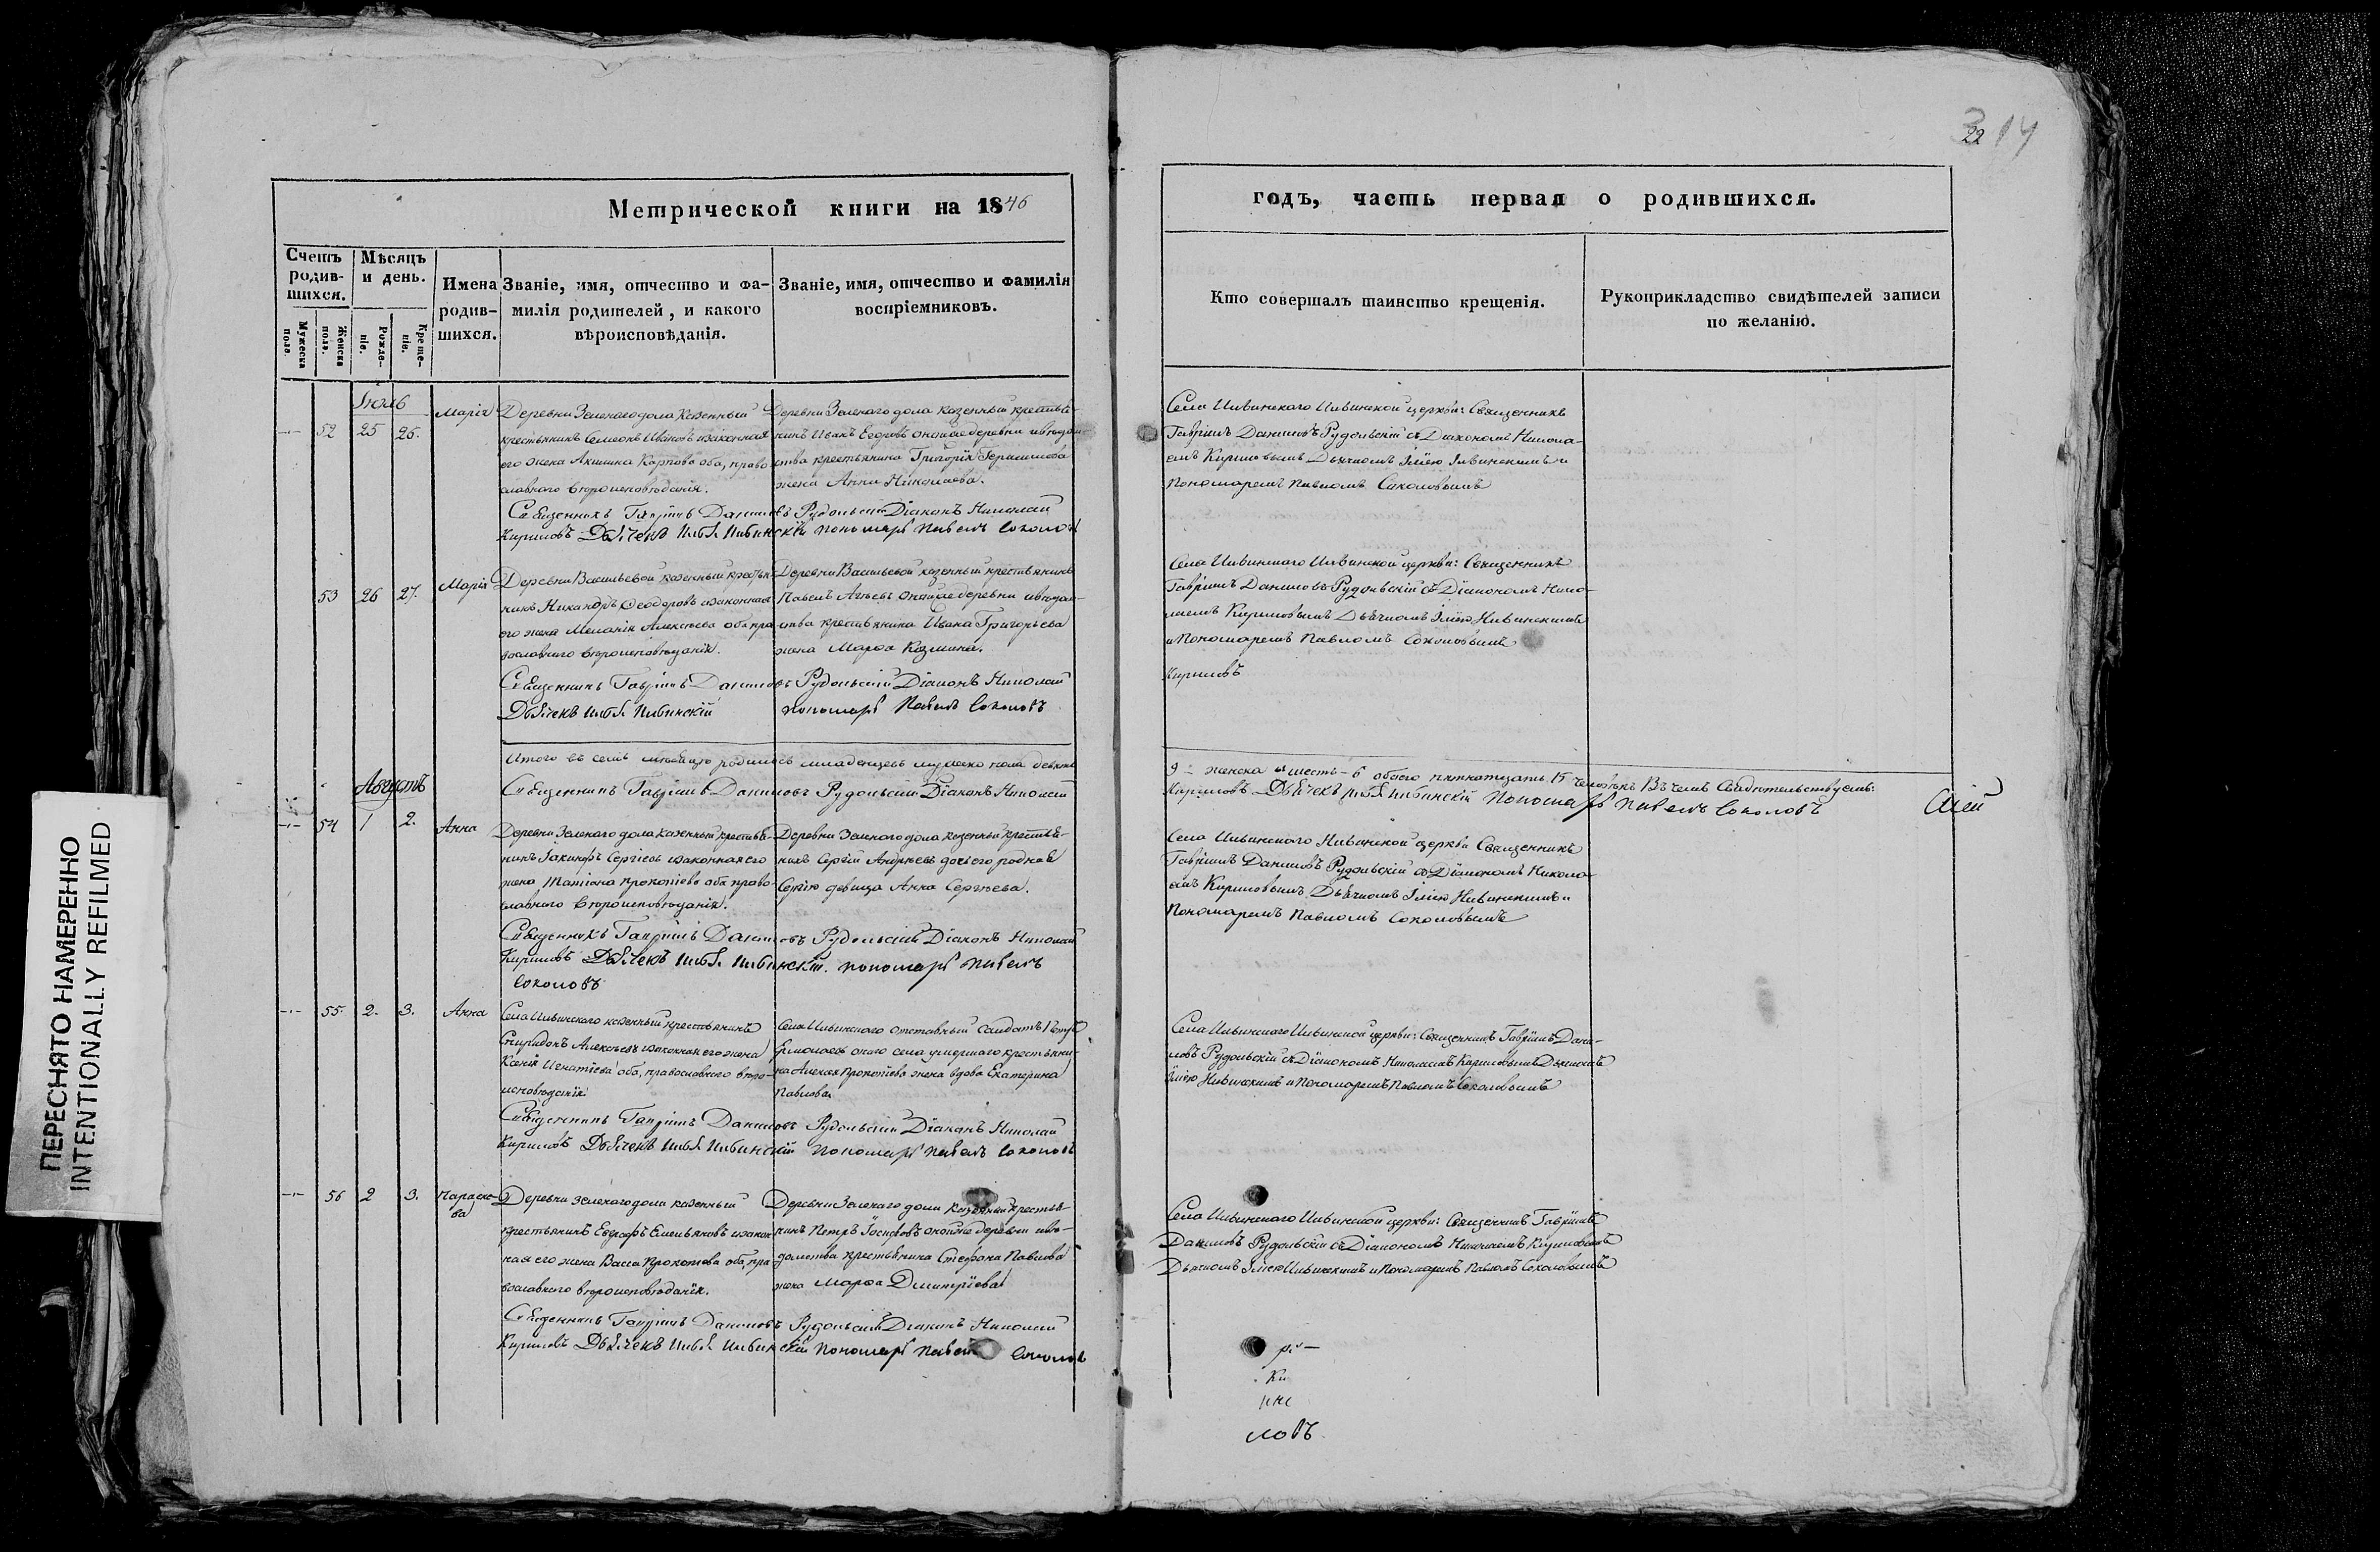 22
314
Метрической книги на 1846
годъ, часть первая о родившихся.
Счетъ родив-
шихся.
Мужеска пола.
Женска пола.
Мѣсяцъ
и день.
Рожде-
ніе.
Креще-
ніе.
Имена
родив-
шихся.
Званіе, имя, отчество и фа-
милія родителей, и какого
вѣроисповѣданія.
Званіе, имя, отчество и фамилія
воспріемниковъ.
Кто совершалъ таинство крещенія.
Рукоприкладство свидѣтелей записи
по желанію.
Іюль
52 25 26. Марія
Деревни Зеленаго дола казенный
крестьянинъ Симеонъ Ивановъ и законная
его жена Акилина Карпова оба, право
славного вѣроисповѣданія.
Деревни Зеленаго дола казенный крестья-
нинъ Иванъ Егоровъ онойже деревни
ства крестьянина Григорія Герасимова
жена Анна Николаева.
Села Ильинскаго Ильинской церкви: Священникъ
Гавріилъ Даниловъ Рудольскій съ Діакономъ Никола-
емъ Кириловымъ Дьячкомъ Іліею Ільинскимъ и
Пономаремъ Павломъ Соколовымъ
Священникъ Гавріилъ Даниловъ Рудольскій Діаконъ Николай
Кириловъ Дьячекъ Илья Ильинскій пономарь Павелъ Соколовъ
53 26 27. Марія
Деревни Васильевой казенный крестья-
нинъ Никандръ Феодоровъ и законная
его жена Меланія Алексѣева оба пра
вославного вѣроисповѣданія.
Деревни Васильевой казенный крестьянинъ
Павелъ онойже деревни
ства крестьянина Ивана Григорьева
жена Марѳа Козмина.
Села Ильинскаго Ильинской церкви: Священникъ
Гавріилъ Даниловъ Рудольскій съ Діакономъ Нико-
лаемъ Кириловымъ Дьячкомъ Іліею Ильинскимъ
и Пономаремъ Павломъ Соколовымъ
Священникъ Гавріилъ Даниловъ Рудольскій Діаконъ Николай
Кириловъ
Дьячекъ Илья Ильинскій пономарь Павелъ Соколовъ
Итого въ семъ мѣсяцѣ родилось младенцевъ мужеска пола девять
9 – женска шесть – 6 обоего пятнатцать 15 человѣкъ Въ чемъ Свидѣтельствуемъ:
Священникъ Гавріилъ Даниловъ Рудольскій Діаконъ Николай
Кириловъ Дьячекъ Илья Ильинскій Пономарь Павелъ Соколовъ
Августъ
54 1 2. Анна
Деревни Зеленаго дола казенный крестья-
нинъ Іакинфъ Сергіевъ и законная его
жена Татіана Прокопіева оба право-
славного вѣроисповѣданія.
Деревни Зеленаго дола казенный крестья-
нинъ Сергій Андрѣевъ дочь его родная
девица Анна Сергѣева.
Села Ильинскаго Ильинской церкви Священникъ
Гавріилъ Даниловъ Рудольскій съ Діакономъ Никола-
емъ Кириловымъ Дьячкомъ Іліею Ильинскимъ и
Пономаремъ Павломъ Соколовымъ
Священникъ Гавріилъ Даниловъ Рудольскій Діаконъ Николай
Кириловъ Дьячекъ Илья Ильинскій. пономарь Павелъ
Соколовъ
55 2. 3. Анна
Села Ильинскаго казенный крестьянинъ
Спиридонъ Алексѣевъ и законная его жена
Ксенія Игнатіева оба, православного вѣро-
исповѣданія
Села Ильинскаго отставный Солдатъ Петръ
Ермолаевъ оного села умершаго крестьяни-
на Алексея Прокопіева жена вдова Екатерина
Павлова
Села Ильинскаго Ильинской церкви: Священникъ Гавріилъ Дани-
ловъ Рудольскій съ Діакономъ Николаемъ Кириловымъ Дьячкомъ
Іліею Ильинскимъ и Пономаремъ Павломъ Соколовымъ
Священникъ Гавріилъ Даниловъ Рудольскій Діаконъ Николай
Кириловъ Дьячекъ Илья Ильинскій Пономарь Павелъ Соколовъ
56 2 3. Параске-
ва
Деревни Зеленаго дола казенный
крестьянинъ Евграфъ Емельяновъ и закон
ная его жена Васса Прокопіева оба, пра
вославного вѣроисповѣданія.
Деревни Зеленаго дола казенный кресть-
нинъ Петръ Іосифовъ онойже деревни
домства крестьянина Стефана Павлова
жена Марѳа Дмитріева
Села Ильинскаго Ильинской церкви: Священникъ Гавріилъ
Даниловъ Рудольскій съ Діакономъ Николаемъ Кириловымъ
Дьячкомъ Іліею Ильинскимъ и Пономаремъ Павломъ Соколовымъ
Священникъ Гавріилъ Даниловъ Рудольскій Діаконъ Николай
Кириловъ Дьячекъ Илья Ильинскій Пономарь Павелъ Соколовъ
ловъ
ПЕРЕСНЯТО НАМЕРЕННО
INTENTIONALLY REFILMED